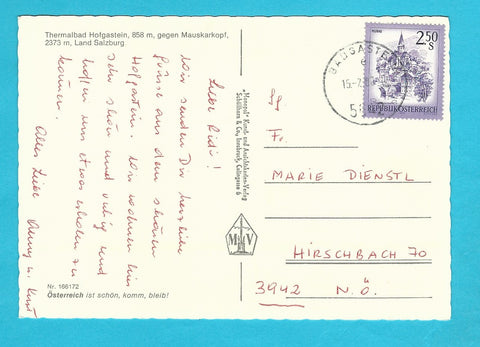 Thermalbad Hofgastein, 858 m, gegen Mauskarkopf,
2373 m, Land Salzburg
Wir senden Dir herzliche
Grüsse aus dem schönen
Hofgastein. Wir wohnen hier
sehr schön und ruhig und
hoffen uns etwas erholen zu
können.
Alles Liebe
Nr. 166172
Österreich ist schön, komm, bleib!
„Monopol“ Kunst- und Ansichtskarten-Verlag
Schöllhorn & Co., Innsbruck,
2.50
S
REPUBLIK ÖSTERREICH
Fr.
MARIE DIENSTL
HIRSCHBACH 70
3942 N.Ö.